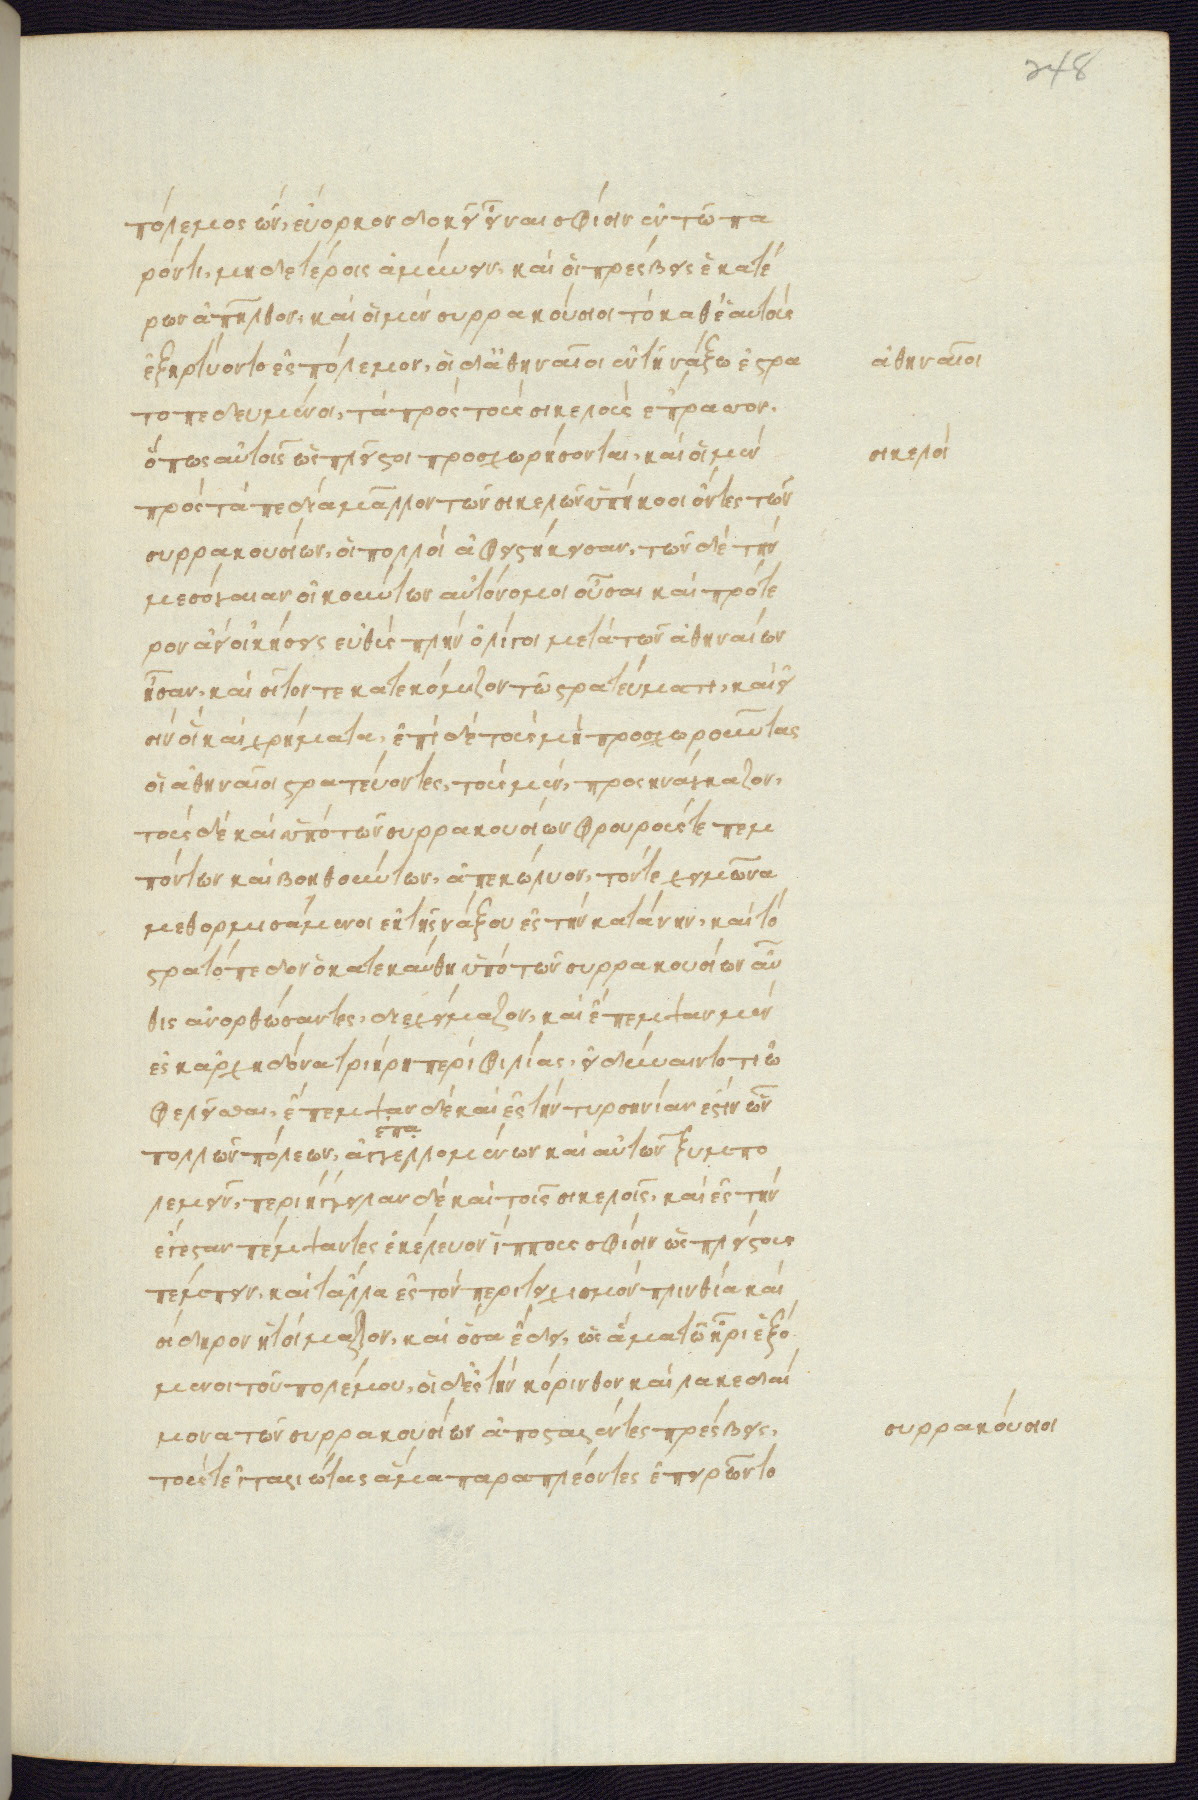 248
πόλεμος ὤν, εὔορκον δοκεῖ εἶναι σφίσιν ἐν τῶ πα
ρόντι, μηδετέροις ἀμύνειν, καὶ οἱ πρέσβεις ἑκατέ
ρων ἀπῆλθον, καὶ οἱ μὲν συρρακούσιοι τὸ καθ' ἑαυτοὺς
ἐξηρτύοντο ἐς πόλεμον, οἱ δ' ἀθηναῖοι ἐν τῆ νάξω ἐστρα
ἀθηναῖοι
τοπεδευμένοι, τὰ πρὸς τοὺς σικελοὺς ἔπρασσον,
ὅπως αὐτοῖς ὡς πλεῖστοι προσχωρήσονται, καὶ οἱ μὲν
σικελοὶ
πρὸς τὰ πεδία μᾶλλον τῶν σικελῶν ὑπήκοοι ὄντες τῶν
συρρακουσίων, οἱ πολλοὶ ἀφειστήκεισαν, τῶν δὲ τὴν
μεσόγαιαν οἰκούντων αὐτόνομοι οὖσαι καὶ πρότε
ρον ἀεὶ οἰκήσεις εὐθὺς πλὴν ὀλίγοι μετὰ τῶν ἀθηναίων
ἦσαν, καὶ σῖτόν τε κατεκόμιζον τῶ στρατεύματι, καὶ εἰ
σὶν οἳ καὶ χρήματα, ἐπὶ δὲ τοὺς μὴ προσχωροῦντας
οἱ ἀθηναῖοι στρατεύοντες, τοὺς μὲν, προσηνάγκαζον,
τοὺς δὲ καὶ ὑπὸ τῶν συρρακουσίων φρουρούς τε πεμ
πόντων καὶ βοηθούντων, ἀπεκώλυον, τόν τε χειμῶνα
μεθορμισάμενοι ἐκ τῆς νάξου ἐς τὴν κατάνην, καὶ τὸ
στρατόπεδον ὃ κατεκαύθη ὑπὸ τῶν συρρακουσίων αὖ
θις ἀνορθώσαντες, διεχείμαζον, καὶ ἔπεμψαν μὲν
ἐς καρχηδόνα τριήρη περὶ φιλίας, εἰ δύναιντό τι ὠ
φελεῖσθαι, ἔπεμψαν δὲ καὶ ἐς τὴν τυρσηνίαν ἔστιν ὧν
επα
πολλῶν πόλεων, ἀγγελλομένων καὶ αὐτῶν ξυμπο
λεμεῖν, περιήγγειλαν δὲ καὶ τοῖς σικελοῖς, καὶ ἐς τὴν
ἔγεσταν πέμψαντες ἐκέλευον ἵππους σφίσιν ὡς πλείστους
πέμπειν, καὶ τἆλλα ἐς τὸν περιτειχισμὸν πλινθία καὶ
σίδηρον ἡτοίμαζον, καὶ ὅσα ἔδει, ὡς ἅμα τῶ ἦρι ἑξό
μενοι τοῦ πολέμου, οἱ δ' ἐς τὴν κόρινθον καὶ λακεδαί
μονα τῶν συρρακουσίων ἀποσταλέντες πρέσβεις,
συρρακόυσιοι
τούς τε ἰταλιώτας ἅμα παραπλέοντες ἐπειρῶντο